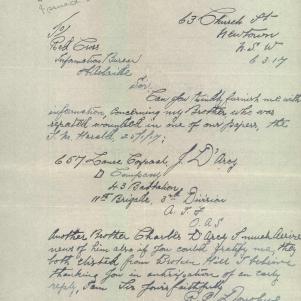 63 Church St
Newtown
N.S.W
6.3.17
To
Red Cross
Information Bureau
Adelaide
Sir
Can you kindly furnish me with
information, concerning my Brother who was
reported wounded in one of our papers, the
S. M. Herald,
657 Lance Corporal J. D'Arcy
D Company
43 Battalion
11th Brigade, 3rd Division
A. I. F
O. A. S
Another Brother Charles D'Arcy I much desire
news of him also if you could gratify me, they
both enlisted from Broken Hill I believe
thanking you in anticipation of an early
reply, I am Sir yours faithfully